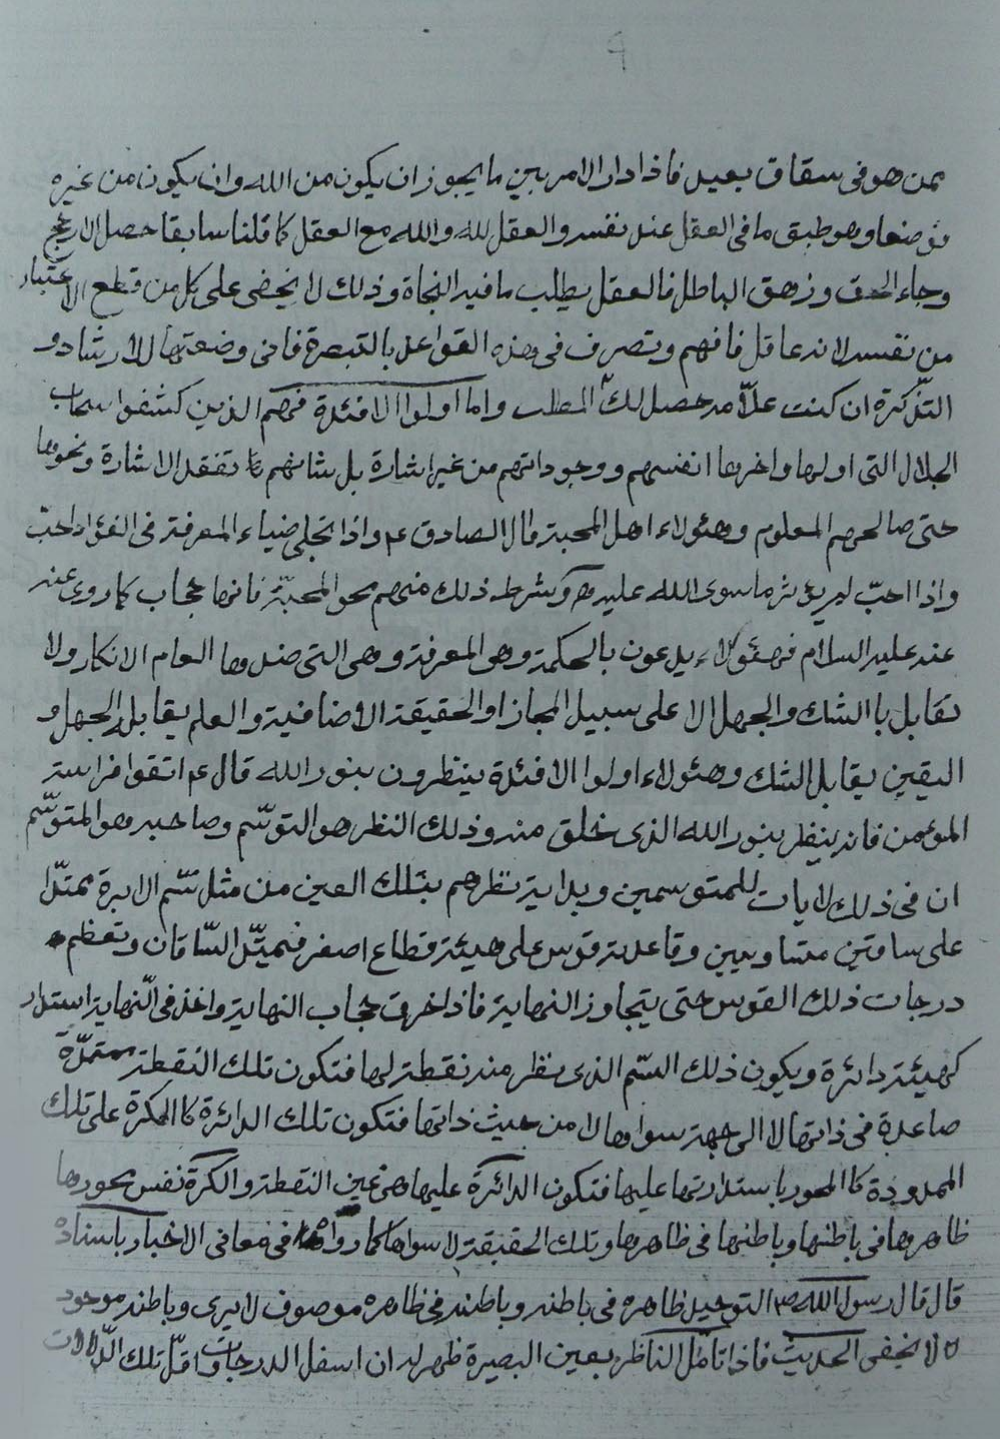 ممن هو فی سقاق بعید فاذا دار الامر بین ما یجوز ان یکون من الله وان یکون من غیره
وهو طبق ما فی العقل عند نفسه والعقل لله والله مع العقل کما قلنا سابقا حصل
وجاء الحق وزهق الباطل فالعقل یطلب ما فیه النجاة وذلک لا یخفی علی کل من قطع الاعتبار
من نفسه لانه عاقل فافهم وتصرف فی هذه القواعد بالتبصرة فانی وضعتها للارشاد و
التذکرة ان کنت حصل لک المطلب واما اولوا الافئدة فهم الذین کشفوا سبحات
الجلال التی اولها واخرها انفسهم ووجوداتهم من غیر اشارة بل شانهم تفقد الاشارة ونحوها
حتی صالحهم المعلوم وهئولاء اهل المحبة قال الصادق ع واذا تجلی ضیاء المعرفة فی الفؤاد احب
واذا احبّ لم یؤثر ما سوی الله علیه وشرط ذلک منهم محو المحبّة فانها حجاب کما روی عنه
عنه علیه السلام فهئولاء یدعون بالحکمة وهو المعرفة وهی التی ضدها العام الانکار ولا
تقابل بالشک والجهل الا علی سبیل المجاز او الحقیقة الاضافیة والعلم یقابله الجهل و
الیقین یقابل الشک وهئولاء اولوا الافئدة ینظرون بنور الله قال ع اتقوا فراسة
المؤمن فانه ینظر بنور الله الذی خلق منه وذلک النظر هو التوسّم وصاحبه هو المتوسّم
ان فی ذلک لایات للمتوسمین وبدایة نظرهم بتلک العین من مثل سمّ الابرة ممتدّا
علی ساقین متساویین وقاعدة قوس علی هیئة قطاع اصغر فیمتدّ السّاقان وتعظم
درجات ذلک القوس حتی یتجاوز النهایة فاذا خرق حجاب النهایة واخذ فی الّنهایة استدار
کهیئة دائرة ویکون ذلک السّم الذی نظر منه نقطة لها فتکون تلک النقطة ممتدّة
صاعدة فی ذاتها لا الی جهة سواها لا من حیث ذاتها فتکون تلک الدائرة کالکرة علی تلک
الممدودة کالمحور باستدارتها علیها فتکون الدائرة علیها هی عین النقطة والکرة نفس محورها
ظاهرها فی باطنها وباطنها فی ظاهرها وتلک الحقیقة لا سواها کما رواه فی معانی الاخبار باسناده
قال قال رسول الله ص التوحید ظاهره فی باطنه وباطنه فی ظاهره موصوف لا یری وباطنه موجود
لا یخفی الحدیث فاذا تامّل الناظر بعین البصیرة ظهر له ان اسفل الدرجات واقلّ تلک الدّلالات